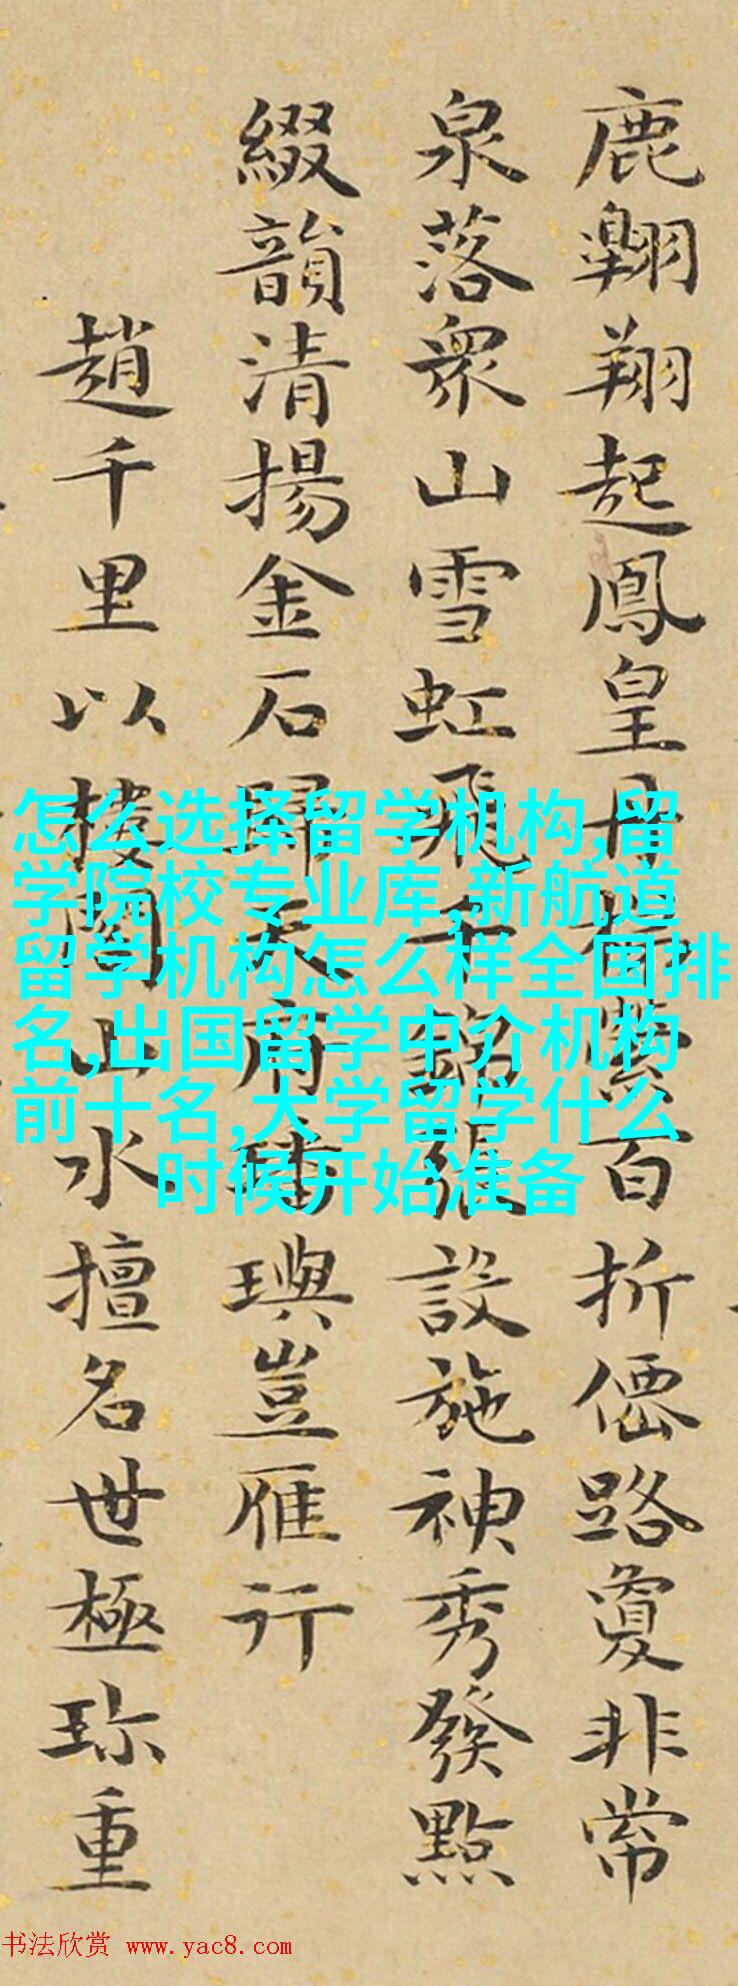 鹿翺翔起鳳皇丹縈百折僊路敻非常
泉落衆山雪虹飛千張設施神秀發點
綴韻清揚金石歸天府璠璵豈雁行
趙千里以樓閣山水擅名世極珎重
怎么选择留学机构,留
学院校专业库,新航道
留学机构怎么样全国排
名,出国留学中介机构
前十名,大学留学什么
时候开始准备
书法欣赏 www.yac8.com